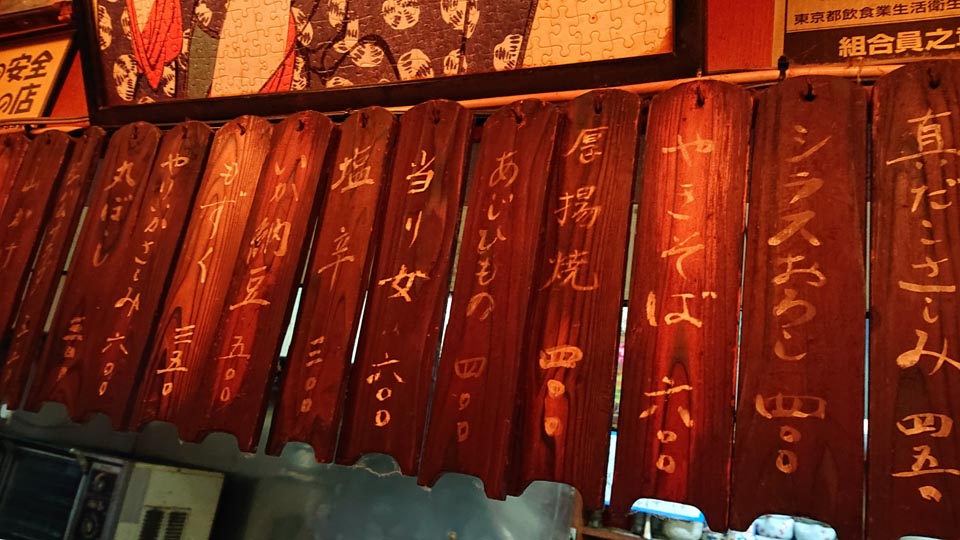 東京都飲食業生活衛生
組合員之章
安全
の店
真だこさしみ 四五〇
シラスおろし 四〇〇
やきそば 六〇〇
厚揚焼 四〇〇
あじひもの 四〇〇
当り女 六〇〇
塩辛 三〇〇
いか納豆 五〇〇
もずく 三五〇
やりいかさしみ 六〇〇
丸ぼし
山かけ